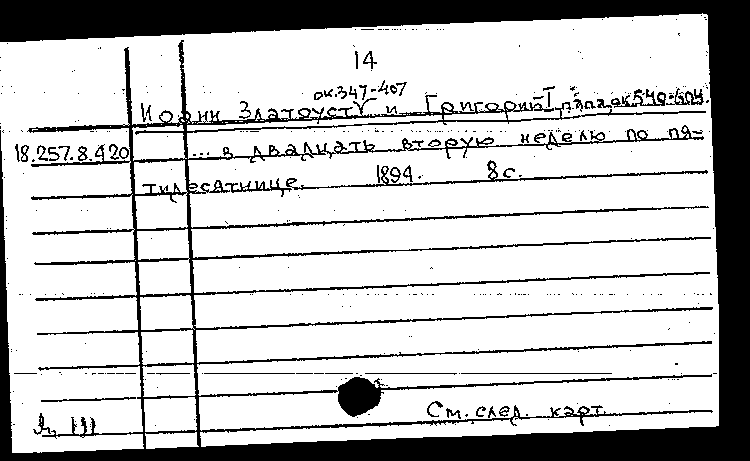 14
ок.347-407
Иоанн Златоуст и Григорий I, папа, ок 540-604.
18.257.8.420 ... в двадцать вторую неделю по пя-
тидесятнице. 1894. 8 с.
См. след. карт.